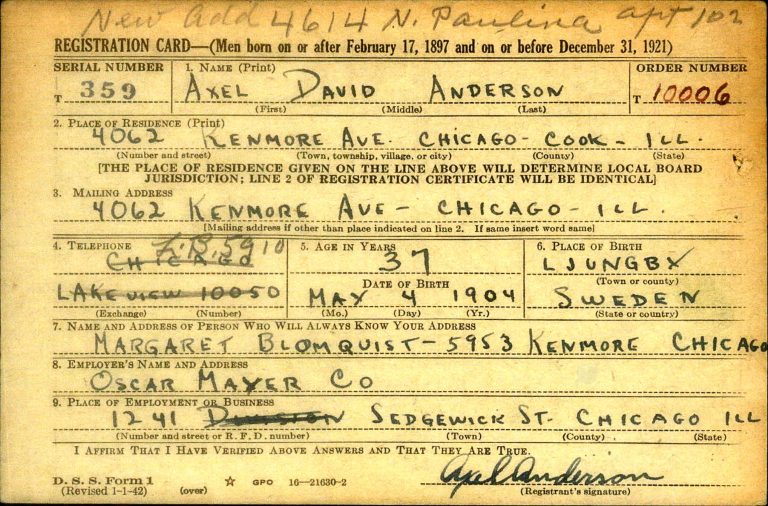 New Add 4614 N. Paulina apt 102
REGISTRATION CARD—(Men born on or after February 17, 1897 and on or before December 31, 1921)
SERIAL NUMBER 1. NAME (Print) ORDER NUMBER
T 359 AXEL DAVID ANDERSON T 10006
(First) (Middle) (Last)
2. PLACE OF RESIDENCE (Print)
4062 KENMORE AVE. CHICAGO - COOK - ILL.
(Number and street) (Town, township, village, or city) (County) (State)
[THE PLACE OF RESIDENCE GIVEN ON THE LINE ABOVE WILL DETERMINE LOCAL BOARD
JURISDICTION; LINE 2 OF REGISTRATION CERTIFICATE WILL BE IDENTICAL]
3. MAILING ADDRESS
4062 KENMORE AVE - CHICAGO - ILL.
[Mailing address if other than place indicated on line 2. If same insert word same]
4. TELEPHONE 5910 5. AGE IN YEARS 6. PLACE OF BIRTH
CHICAGO 37 LJUNGBY
(Town or county)
DATE OF BIRTH
LAKEVIEW 10050 MAY 4 1904 SWEDEN
(Exchange) (Number) (Mo.) (Day) (Yr.) (State or country)
7. NAME AND ADDRESS OF PERSON WHO WILL ALWAYS KNOW YOUR ADDRESS
MARGARET BLOMQUIST - 5953 KENMORE CHICAGO
8. EMPLOYER'S NAME AND ADDRESS
OSCAR MAYER CO
9. PLACE OF EMPLOYMENT OR BUSINESS
1241 DIVISION SEDGEWICK ST. CHICAGO ILL
(Number and street or R. F. D. number) (Town) (County) (State)
I AFFIRM THAT I HAVE VERIFIED ABOVE ANSWERS AND THAT THEY ARE TRUE.
Axel Anderson
D. S. S. Form 1
(Revised 1-1-42) (over) ☆ GPO 16—21630-2 (Registrant's signature)